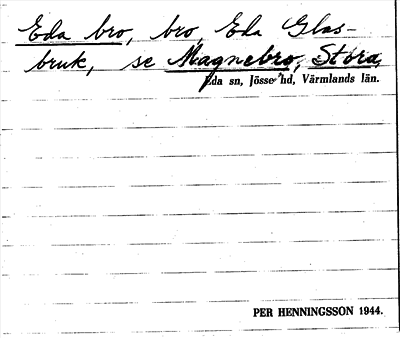 Eda bro, bro, Eda Glas-
bruk, se Magnebro, Stora,
Eda sn, Jösse hd, Värmlands län.
PER HENNINGSSON 1944.